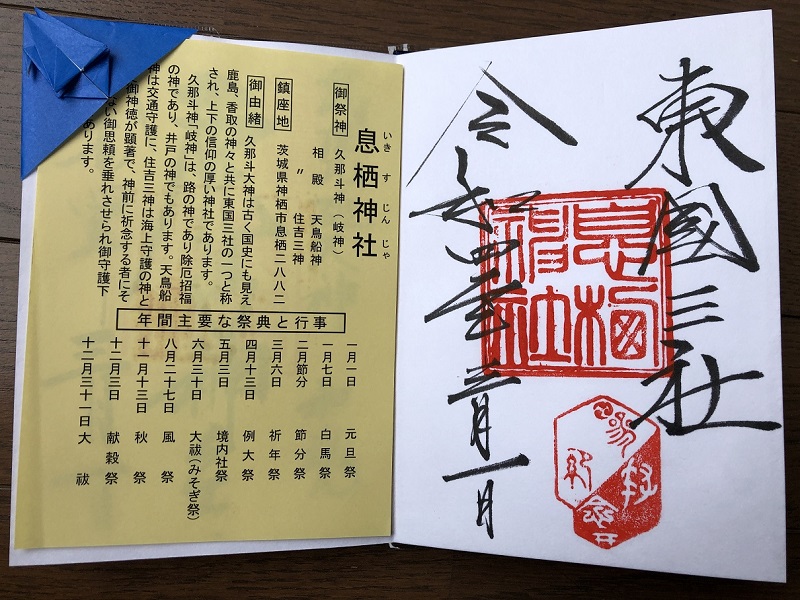 東國三社
息栖神社
令和四年三月一日
息栖神社
いきすじんじゃ
御祭神 久那斗神(岐神)
相殿 天鳥船神
〃 住吉三神
鎮座地 茨城県神栖市息栖二八八二
御由緒 久那斗大神は古く国史にも見え
鹿島、香取の神々と共に東国三社の一つと称
され、上下の信仰の厚い神社であります。
久那斗神「岐神」は、路の神であり除厄招福
の神であり、井戸の神でもあります。天鳥船
神は交通守護に、住吉三神は海上守護の神と
御神徳が顕著で、神前に祈念する者にそ
ない御恩頼を垂れさせられ御守護下
あります。
年間主要な祭典と行事
一月一日 元旦祭
一月七日 白馬祭
二月節分 節分祭
三月六日 祈年祭
四月十三日 例大祭
五月三日 境内社祭
六月三十日 大祓(みそぎ祭)
八月二十七日 風祭
十一月十三日 秋祭
十二月三日 献穀祭
十二月三十一日 大祓